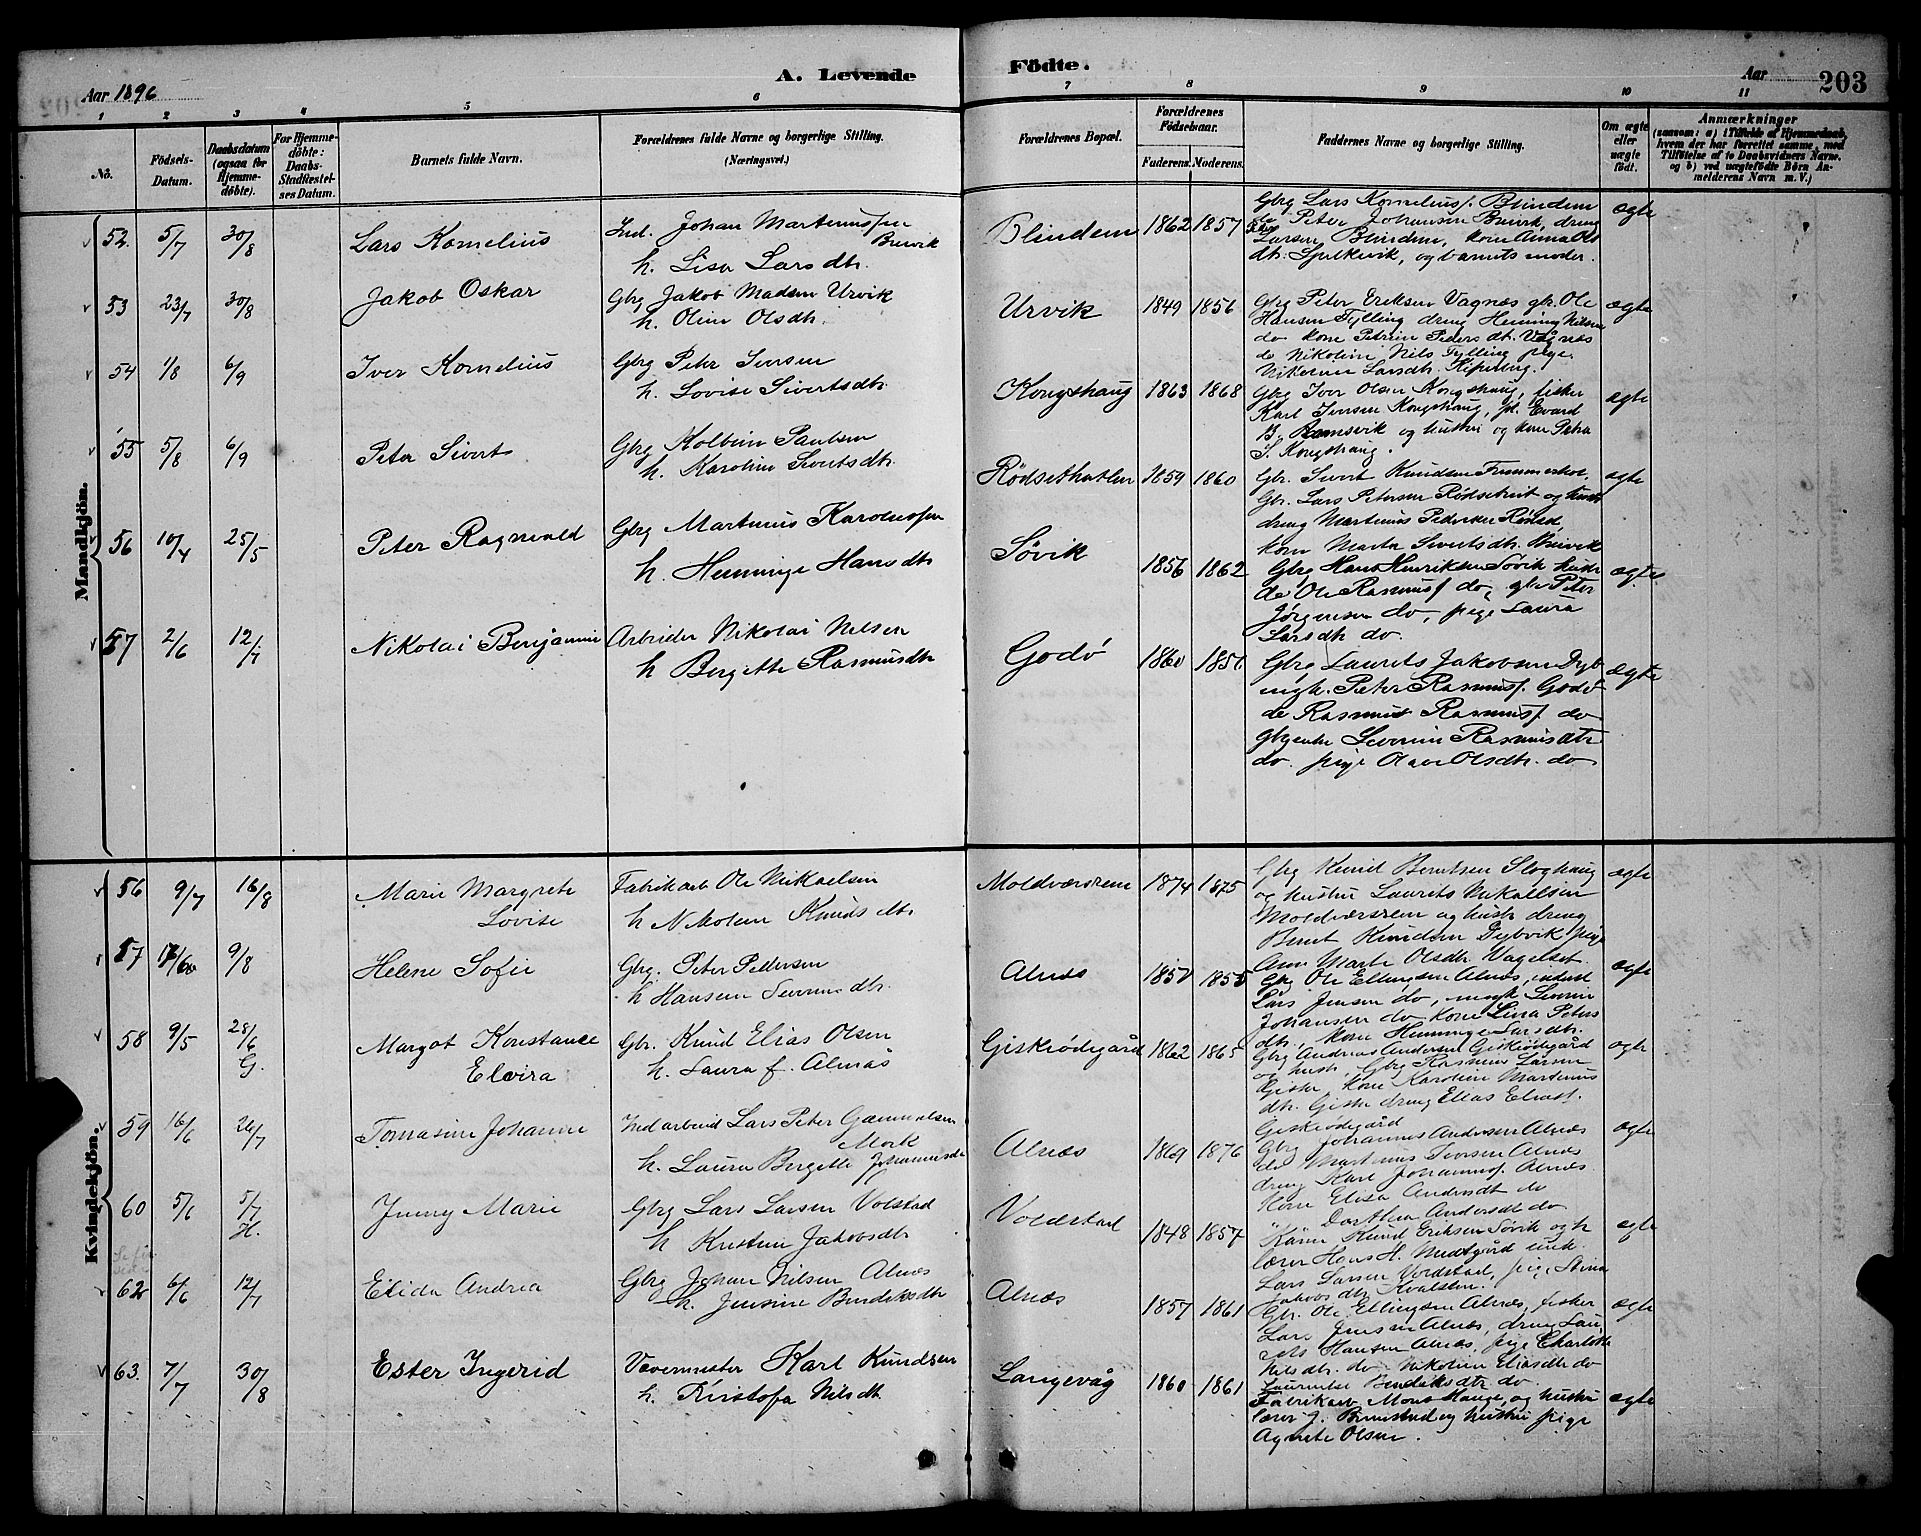 A. Levende Födte.
Aar 1896
Aar 203
1 2 3 4 5 6 7 8 9 10 11
No.
Födsels-Datum.
Daabsdatum (ogsaa for Hjemmedöbte).
For Hjemmedöbte: Daabs-Stadfæstelses Datum.
Barnets fulde Navn.
Forældrenes fulde Navne og borgerlige Stilling. (Næringsvei.)
Forældrenes Bopæl.
Forældrenes Födselsaar.
Faderens. Moderens.
Faddernes Navne og borgerlige Stilling.
Om ægte eller uægte födt.
Anmærkninger
(saasom: a) i Tilfælde af Hjemmedaab, hvem der har forrettet samme, med Tilföielse af to Daabsvidners Navne, og b) ved uægtefödte Börn Anmelderens Navn m. V.)
Mandkjön.
52. 5/7 30/8 Lars Kornelius
Ind. Johan Martinussen Buvik
h. Lisa Larsdtr.
Blindem 1862 1857
Gbrg Lars Kornelius. Blindem
do Peter Johansen Buvik, dreng
Larsen Blindem, kone Anna Ols
dtr. Spelkevik, og barnets moder.
ægte
53 23/7 30/8 Jakob Oskar
Gbrg Jakob Madsen Urvik
h. Oline Olsdtr.
Urvik 1849 1856
Gbrg Peter Eriksen Vagnæs gbr. Ole
Hansen Tylling dreng Henning Nilsen
do kone Petrine Pedersdt. Vågnæs
do Nikoline Nils Tylling pige
Larsdtr.
ægte
54 1/8 6/9 Iver Kornelius
Gbrg Peter Iversen
h. Lovise Sivertsdtr
Kongshaug 1863 1868
Gbrg Iver Olsen Kongshaug, fisker
Karl Iversen Kongshaug, Evard
B. Ramsvik og hustru og kone Petra
I. Kongshaug.
ægte
55 5/8 6/9 Peter Sivert
Gbrg Kolbein Paulsen
h. Karoline Sivertsdtr.
Rödsethatlen 1859 1860
Gbr. Sivert Knudsen
Gbr. Lars Petersen og hust
dreng Martinus Pedersen
kone Marta Sivertsdtr. Buvik
ægte
56 10/4 25/5 Peter Ragnvald
Gbrg Martinus Karolussen
h. Henninge Hansdtr
Søvik 1856 1862
Gbrg Hans Henriksen Søvik
do Ole Rasmuss do, gbr Peter
Jørgensen do, pige Laura
Larsdtr do.
ægte
57 2/6 12/7 Nikolai Benjamin
Arbeider Nikolai Nilsen
h Bergitte Rasmusdtr
Godö 1860
Gbrg Laurits Jakobsen Dyb
ungk. Peter Rasmuss. Godö
do Rasmus Rasmuss do
gbgenke Severine Rasmusdtr
do. pige Olave Olsdtr. do
ægte
Kvindekjön.
56 9/7 16/8 Marie Margrete Lovise
Fabrikarb Ole Mikaelsen
h Nikoline Knudsdtr.
Moldværsrem 1874 1875
Gbrg Knud Berntsen Sloghaug
og hustru Laurits Mikaelsen
Moldværsrem og hust dreng
Bernt Knudsen Dybvik pige
Ane Marte Olsdtr Vagelset.
ægte
57 9/8 Helene Sofie
Gbrg. Peter Pedersen
h Hansine
Alnæs
Gbg Ole Ellingsen Alnæs,
Lars Jensen do, ungk
Johansen do kone Lina Peters
dtr. kone Henninge Larsdtr.
ægte
58 9/5 28/6 G. Margot Konstance Elvira
Gbr. Knud Elias Olsen
h. Laura f. Alnæs
Giskeödegård 1862 1865
Gbrg Andreas Andersen Giskeödegård
og hust, Gbrg Rasmus Larsen
Giske, kone Karoline Martinus
dtr. Giske dreng Elias
Giskeödegård
ægte
59 16/6 26/7 Tomasine Johanne
Indarbeid Lars Peter Gammelsen Mork
h. Laura Bergitte Johannesdtr
Alnæs 1869 1876
Gbrg Johannes Andersen Alnæs
do Martinus Iversen Alnæs
dreng Karl Johanness. Alnæs
Kone Elisa Andersdt do
" Dorthea Andersdtr do
ægte
60 5/6 5/7 H. Jenny Marie
Gbrg Lars Larsen Volstad
h Kristine Jakobsdtr
Voldstad 1848 1857
Knud Eriksen Søvik og h
lærer Hans H. Medtgård
Lars Larsen Voldstad, pige Stina
Jakobsdtr Kvalsten.
ægte
62 6/6 12/7 Elida Andrea
Gbrg Johan Nilsen Alnæs
h. Jensine Bendiksdtr
Alnæs 1857 1861
Gbr. Ole Ellingsen Alnæs, fisker
Lars Jensen Alnæs, dreng Lau
rits Hansen Alnæs, pige Charlotte
Nilsdtr. do Nikoline Eliasdtr do
Bendiksdtr do.
ægte
63. 7/7 30/8 Ester Ingerid
Vævermester Karl Knudsen
h. Kristofa Nilsdt
Langevåg 1860 1861
Fabrikarb Mons Hauge, og hustru
lærer J. Brunstad og hustru pige
Agnete Olsen.
ægte